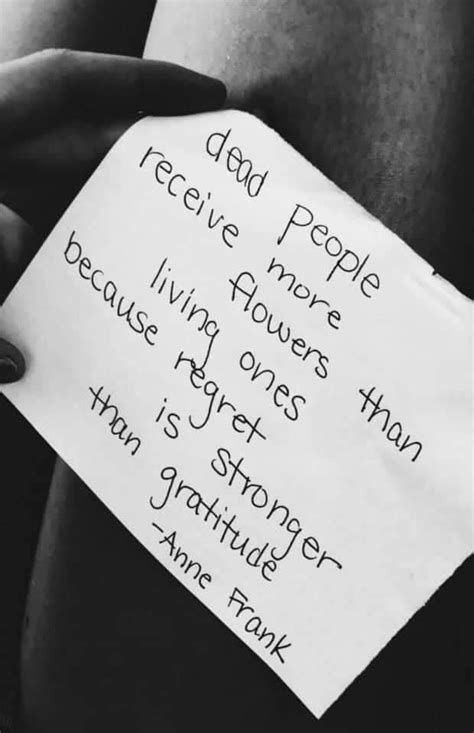 dead people
receive more
flowers than
living ones
because regret
is stronger
than gratitude
-Anne Frank